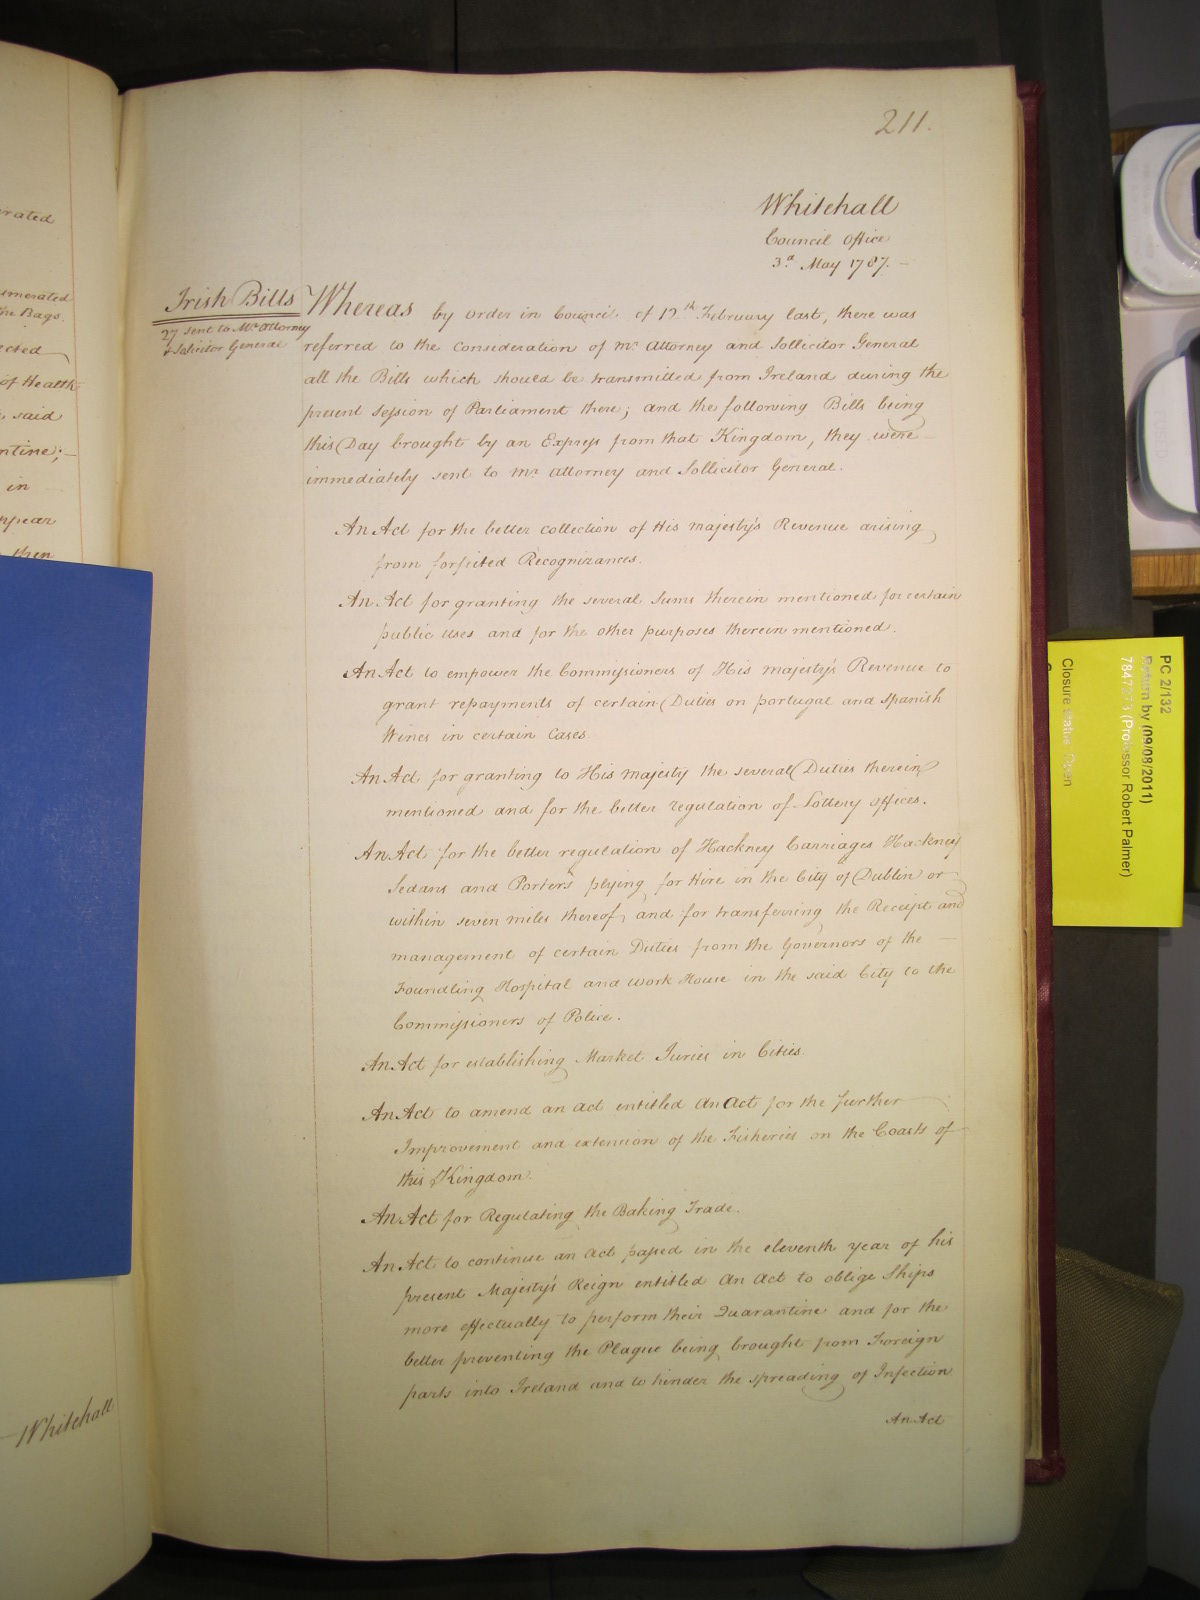 211.
Whitehall
Council Office
3d. May 1787. —
Irish Bills
27 sent to Mr. Attorney
& Solicitor General
Whereas by order in Council of 12th February last, there was
referred to the Consideration of Mr. Attorney and Sollicitor General
all the Bills which should be transmitted from Ireland during the
present Session of Parliament there; and the following Bills being
this Day brought by an Express from that Kingdom, they were —
immediately sent to Mr. Attorney and Sollicitor General.
An Act for the better collection of His Majesty's Revenue arising
from forfeited Recognizances.
An Act for granting the several Sums therein mentioned for certain
public uses and for the other purposes therein mentioned.
An Act to empower the Commissioners of His Majesty's Revenue to
grant repayments of certain Duties on Portugal and Spanish
Wines in certain Cases.
An Act for granting to His Majesty the several Duties therein
mentioned and for the better regulation of Lottery offices.
An Act for the better regulation of Hackney Carriages Hackney
Sedans and Porters plying for Hire in the City of Dublin or
within seven miles thereof, and for transferring the Receipt and
management of certain Duties from the Governors of the —
Foundling Hospital and Work House in the said City to the
Commissioners of Police.
An Act for establishing Market Juries in Cities.
An Act to amend an Act entitled An Act for the further
Improvement and extension of the Fisheries on the Coasts of
this Kingdom.
An Act for Regulating the Baking Trade.
An Act to continue an Act passed in the eleventh year of his
present Majesty's Reign entitled An Act to oblige Ships
more effectually to perform their Quarantine and for the
better preventing the Plague being brought from Foreign
parts into Ireland and to hinder the spreading of Infection
An Act
rated
umerated
the Bags.
ected
of Health
said
ntine; —
in
ppear
then
Whitehall
PC 2/132
Return by (09/08/2011)
(Professor Robert Palmer)
Closure status Open